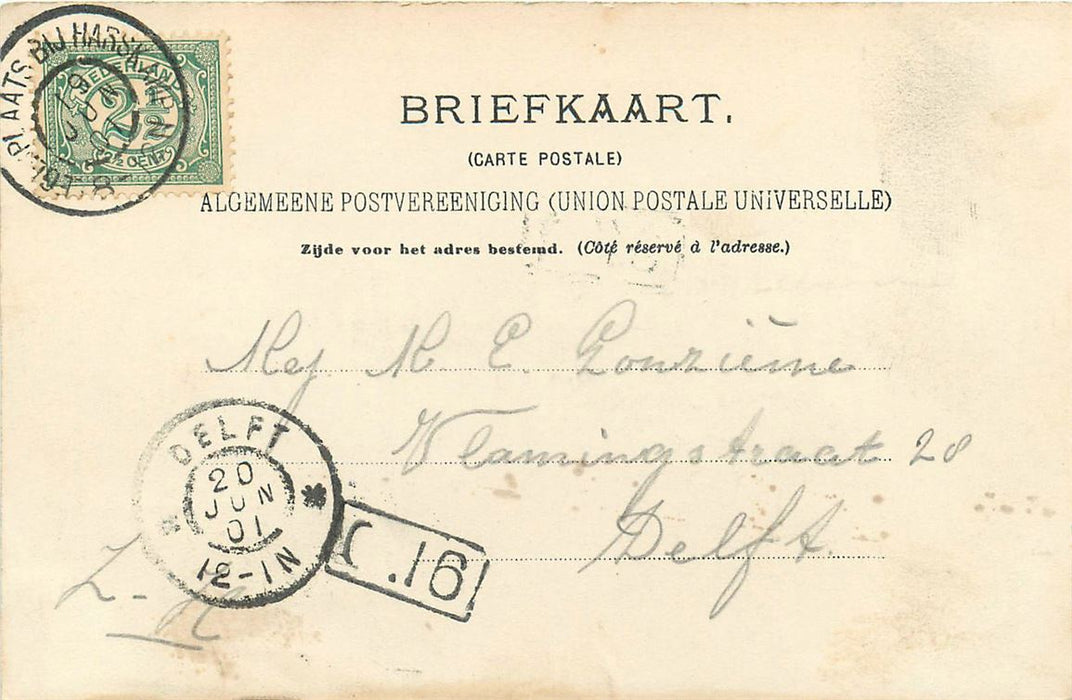 PLAATS BIJ HARSKAMP
JUN
8-
N
NEDERLAND
2½
2½ CENT
BRIEFKAART.
(CARTE POSTALE)
ALGEMEENE POSTVEREENIGING (UNION POSTALE UNIVERSELLE)
Zijde voor het adres bestemd. (Côté réservé à l'adresse.)
Mej M. E. Gonzième
Vlamingstraat 28
Delft.
Z-H
DELFT
20
JUN
01
12-1N
C.16